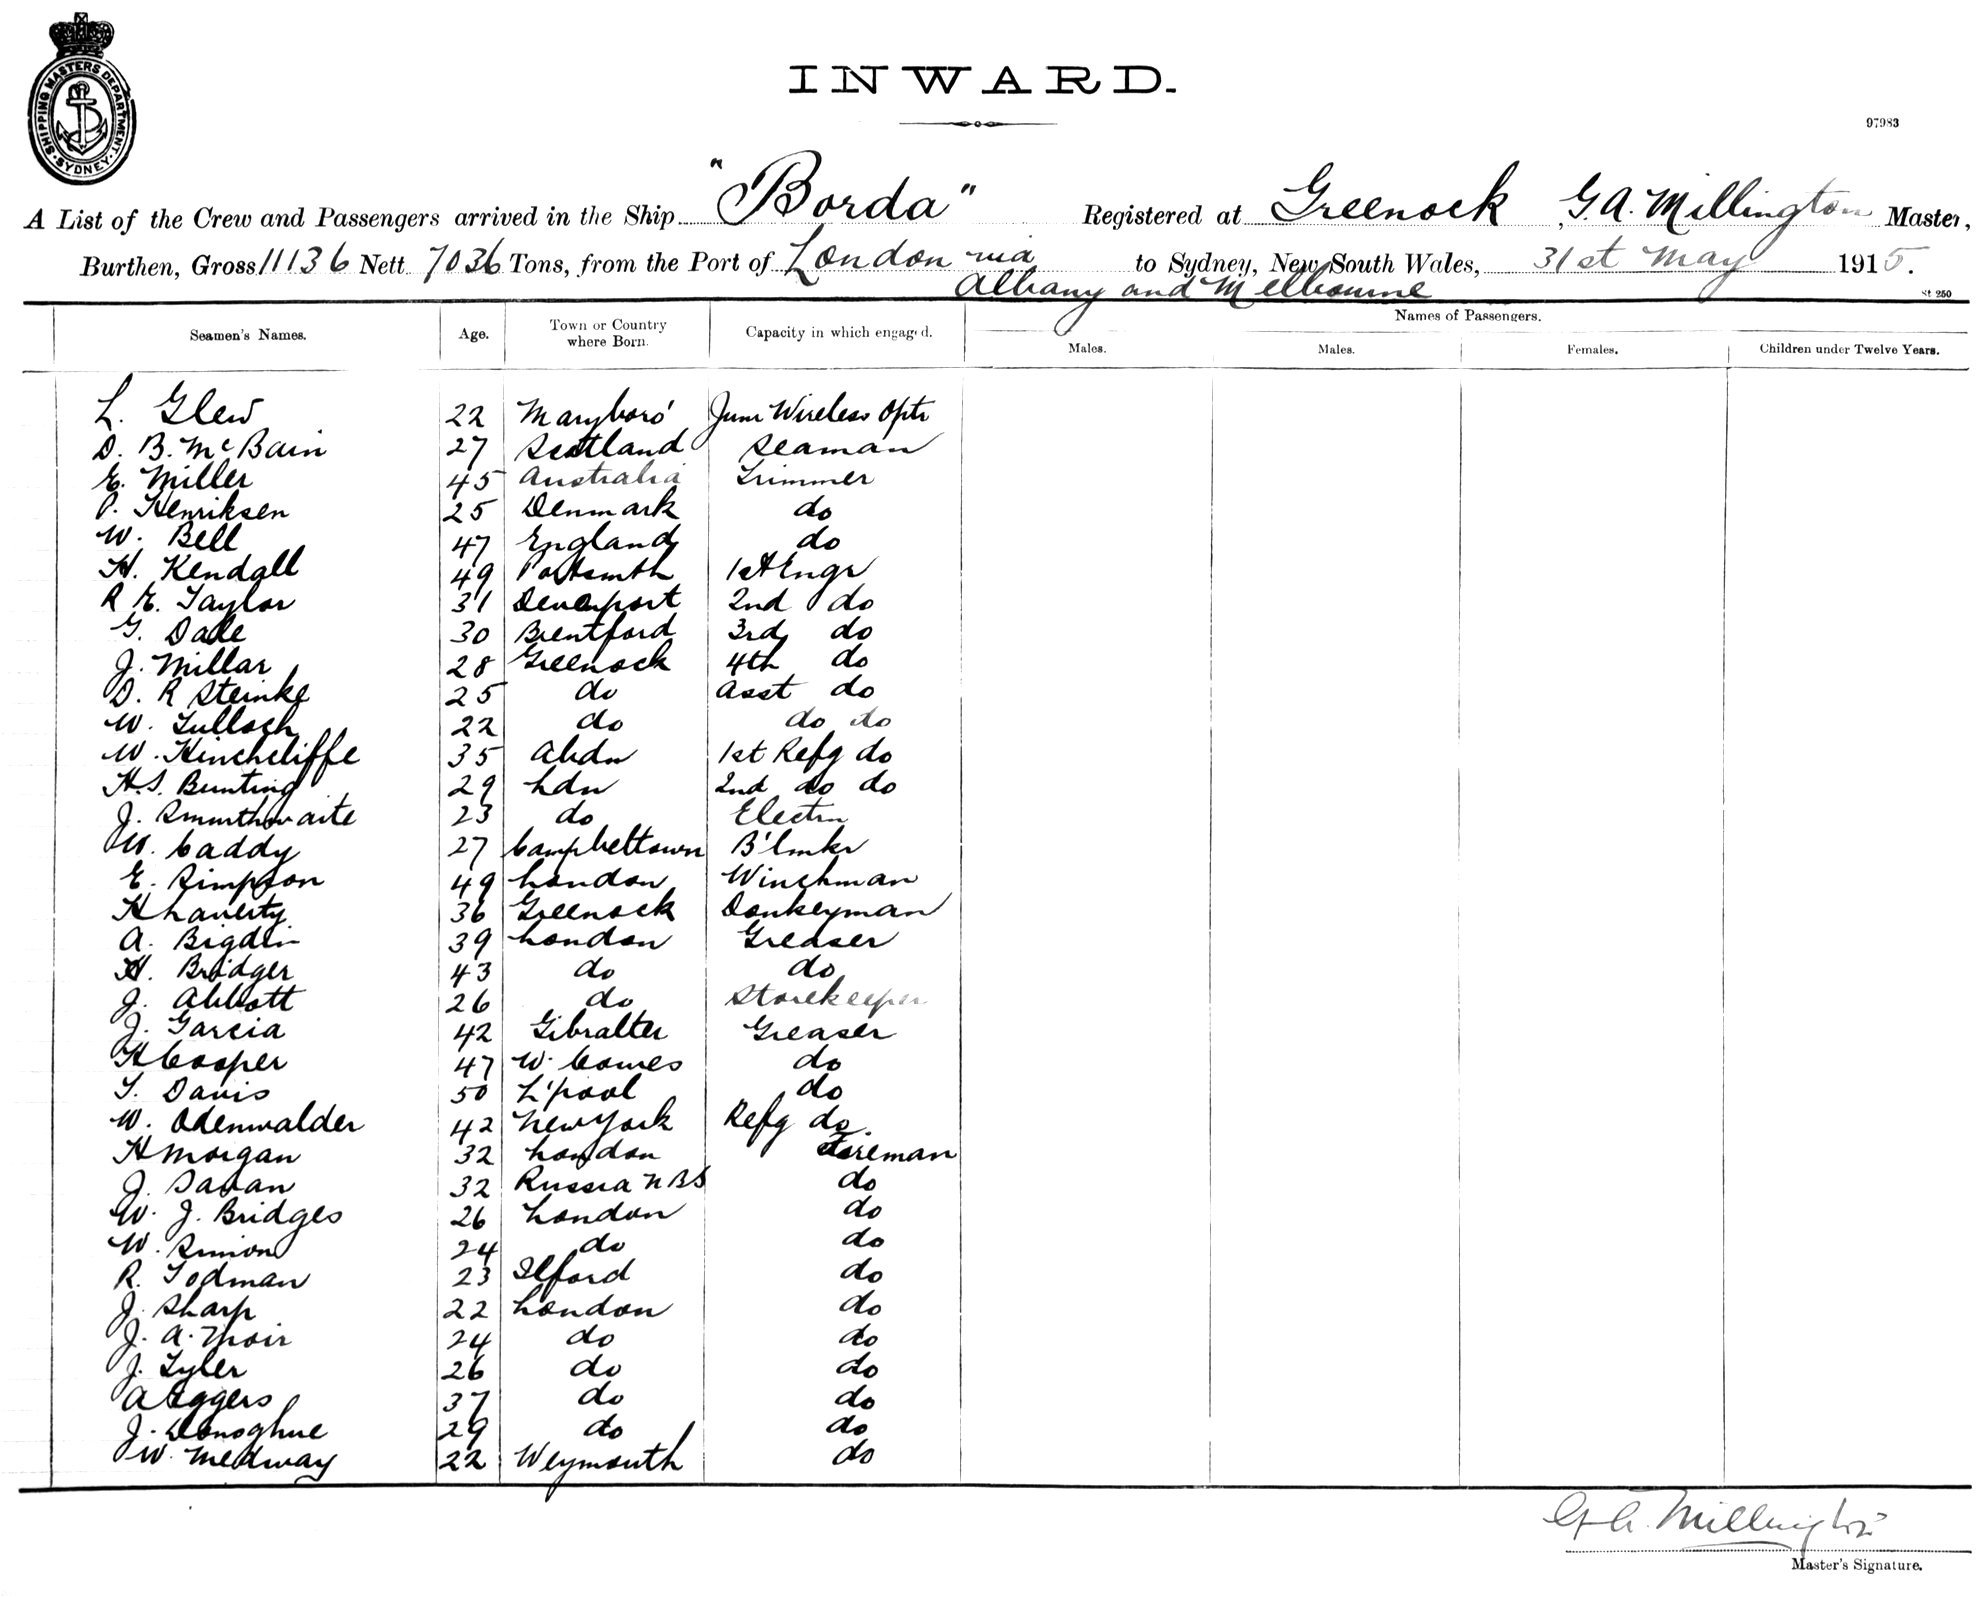 SHIPPING MASTERS DEPARTMENT. SYDNEY.
INWARD.
97983
A List of the Crew and Passengers arrived in the Ship "Borda" Registered at Greenock, G.A. Millington Master,
Burthen, Gross 11136 Nett 7036 Tons, from the Port of London via to Sydney, New South Wales, 31st May 1915.
Albany and Melbourne
St 250
Names of Passengers.
Seamen's Names. Age. Town or Country where Born. Capacity in which engaged. Males. Males. Females. Children under Twelve Years.
L. Glew 22 Maryboro' Junr Wireless Optr
D. B. McBain 27 Scotland Seaman
E. Miller 45 Australia Trimmer
P. Henriksen 25 Denmark do
W. Bell 47 England do
H. Kendall 49 Portsmth 1st Engr
R E. Taylor 31 Devenport 2nd do
G. Dale 30 Brentford 3rd do
J. Millar 28 Greenock 4th do
D. R Steinke 25 do Asst do
W. Tulloch 22 do do do
W. Hinchcliffe 35 Abdn 1st Refg do
H.S. Bunting 29 Ldn 2nd do do
J. Smurthwaite 23 do Electrn
W. Caddy 27 Campbeltown B'lmkr
E. Simpson 49 London Winchman
H Laverty 36 Greenock Donkeyman
A. Bigdin 39 London Greaser
H. Bridger 43 do do
J. Abbott 26 do Storekeeper
J. Garcia 42 Gibralter Greaser
H Cooper 47 W. Cowes do
T. Davis 50 L'pool do
W. Odenwalder 42 New York Refg do.
H Morgan 32 London Fireman
J. Savan 32 Russia NBS do
W. J. Bridges 26 London do
W. Simon 24 do do
R. Todman 23 Ilford do
J. Sharp 22 London do
J. A. Moir 24 do do
J. Tyler 26 do do
A Eggers 37 do do
J. Donoghue 29 do do
W. Medway 22 Weymouth do
G A. Millington
Master's Signature.